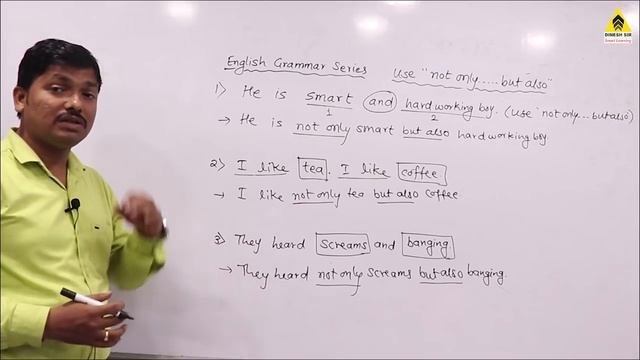 DINESH SIR
Smart Learning
English Grammar Series use "not only.....but also"
1) He is smart and hardworking boy. (use "not only...but also)
1 2
→ He is not only smart but also hardworking boy.
2) I like tea. I like coffee.
→ I like not only tea but also coffee
3) They heard screams and banging.
→ They heard not only screams but also banging.